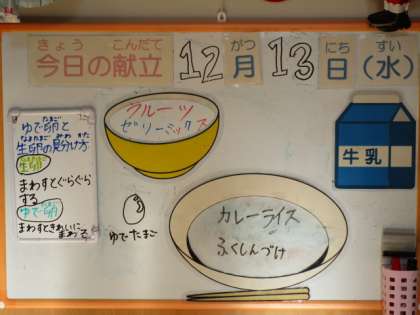 きょう こんだて がつ にち すい
今日の献立 12月13日(水)
フルーツ
ゼリーミックス
牛乳
ゆで卵と
たまご
生卵の見分け方
なまたまご みわ かた
生卵
まわすとぐらぐら
する
ゆで卵
まわすときれいに
まわる
ゆでたまご
カレーライス
ふくしんづけ